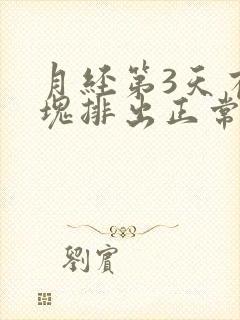 月经第3天
塊排出正常
劉賓